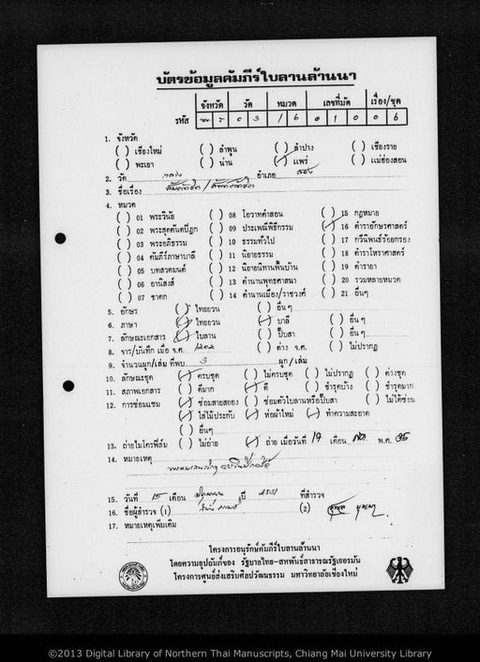 บัตรข้อมูลคัมภีร์ใบลานล้านนา
จังหวัด วัด หมวด เลขที่มัด เรื่อง/ชุด
รหัส พ ร 0 3 1 6 0 1 0 0 6
1. จังหวัด
( ) เชียงใหม่ ( ) ลำพูน ( ) ลำปาง ( ) เชียงราย
( ) พะเยา ( ) น่าน (✓) แพร่ ( ) แม่ฮ่องสอน
2. วัด อำเภอ
3. ชื่อเรื่อง
4. หมวด
( ) 01 พระวินัย ( ) 08 โอวาทคำสอน ( ) 15 กฎหมาย
( ) 02 พระสุตตันตปิฎก ( ) 09 ประเพณีพิธีกรรม (✓) 16 ตำราอักษรศาสตร์
( ) 03 พระอภิธรรม ( ) 10 ธรรมทั่วไป ( ) 17 กวีนิพนธ์ร้อยกรอง
( ) 04 คัมภีร์ภาษาบาลี ( ) 11 นิยายธรรม ( ) 18 ตำราโหราศาสตร์
( ) 05 บทสวดมนต์ ( ) 12 นิยายนิทานพื้นบ้าน ( ) 19 ตำรายา
( ) 06 อานิสงส์ ( ) 13 ตำนานพุทธศาสนา ( ) 20 รวมหลายหมวด
( ) 07 ชาดก ( ) 14 ตำนานเมือง/ราชวงศ์ ( ) 21 อื่นๆ
5. อักษร (✓) ไทยยวน ( ) อื่น ๆ
6. ภาษา (✓) ไทยยวน (✓) บาลี ( ) อื่น ๆ
7. ลักษณะเอกสาร (✓) ใบลาน ( ) ปั๊บสา ( ) อื่น ๆ
8. จาร/บันทึก เมื่อ จ.ศ. ( ) ต่าง จ.ศ. ( ) ไม่ปรากฏ
9. จำนวนผูก/เล่ม ที่พบ 3 ผูก/เล่ม
10. ลักษณะชุด (✓) ครบชุด ( ) ไม่ครบชุด ( ) ไม่ปรากฏ ( ) ต่างชุด
11. สภาพเอกสาร ( ) ดีมาก (✓) ดี ( ) ชำรุดบ้าง ( ) ชำรุดมาก
12. การซ่อมแซม (✓) ซ่อมสายสยอง ( ) ซ่อมตัวใบลานหรือปั๊บสา ( ) ไม่ได้ซ่อม
(✓) ใส่ไม้ประกับ (✓) ห่อผ้าใหม่ (✓) ทำความสะอาด
( ) อื่นๆ
13. ถ่ายไมโครฟิล์ม ( ) ไม่ถ่าย (✓) ถ่าย เมื่อวันที่ 17 เดือน พ.ศ.
14. หมายเหตุ
15. วันที่ เดือน ปี ที่สำรวจ
16. ชื่อผู้สำรวจ (1) (2)
17. หมายเหตุเพิ่มเติม
โครงการอนุรักษ์คัมภีร์ใบลานล้านนา
โดยความอุปถัมภ์ของ รัฐบาลไทย-สหพันธ์สาธารณรัฐเยอรมัน
โครงการศูนย์ส่งเสริมศิลปวัฒนธรรม มหาวิทยาลัยเชียงใหม่
©2013 Digital Library of Northern Thai Manuscripts, Chiang Mai University Library